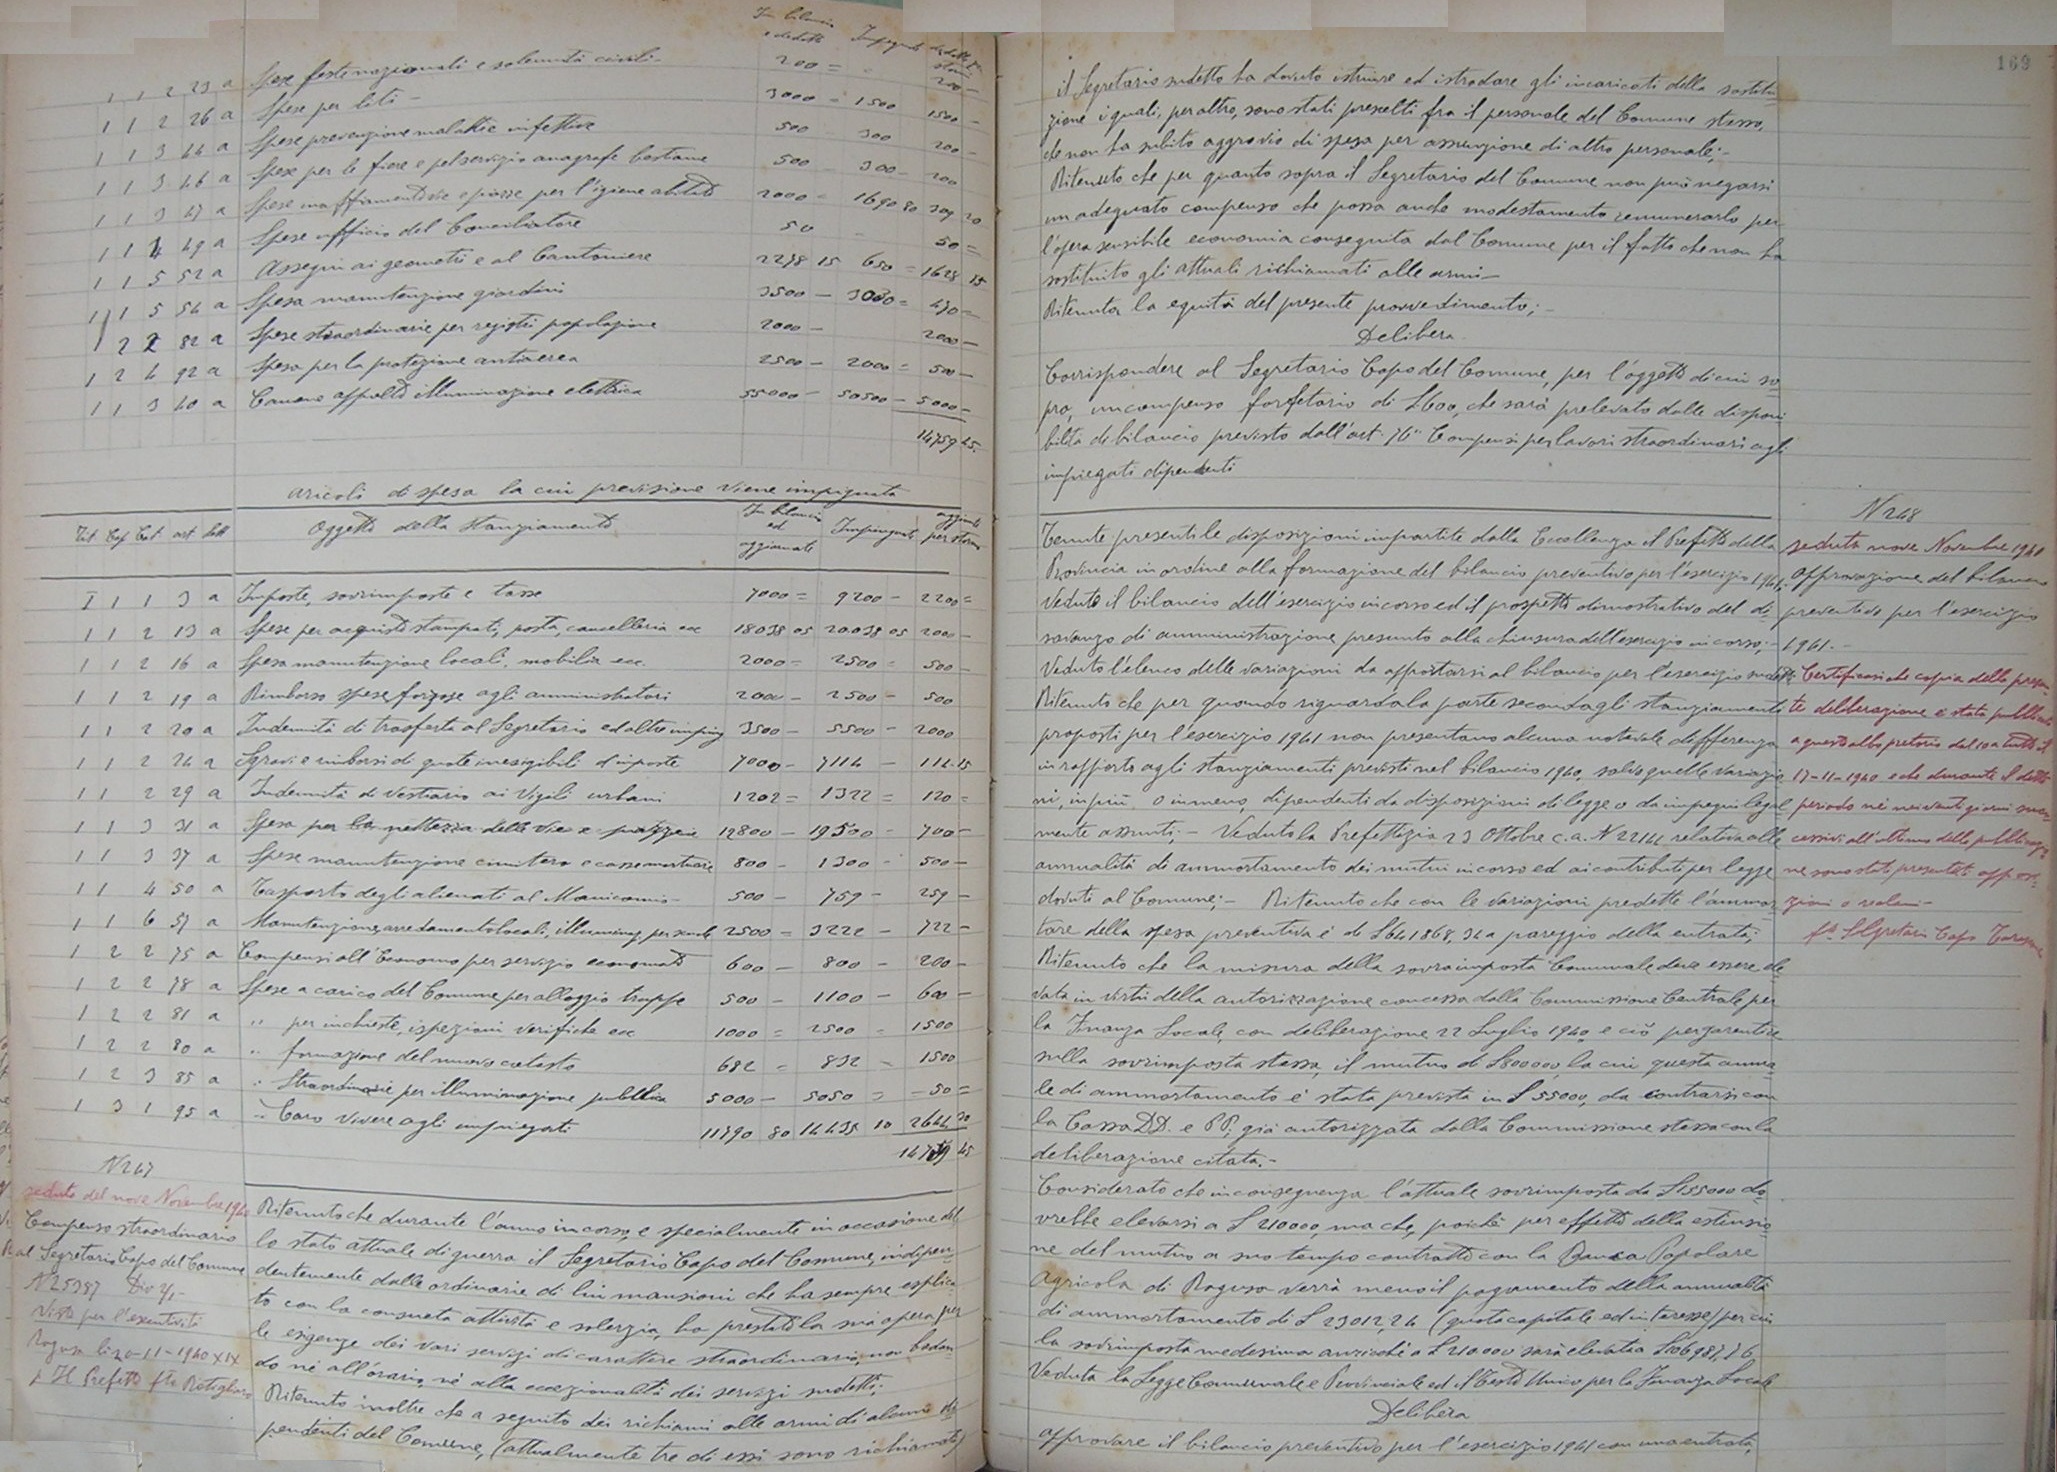 In bilancio e dedotti Impegnate dedotte per storni
1 1 2 23 a Spese feste nazionali e solennità civili - 200 = - 200 -
1 1 2 26 a Spese per liti - 3000 - 1500 1500 -
1 1 3 44 a Spese prevenzione malattie infettive 500 - 300 200 -
1 1 3 46 a Spese per le fiere e pel servizio anagrafe bestiame 500 300 - 200
1 1 3 47 a Spese inaffiamento vie e piazze per l'igiene abitato 2000 - 1690 80 309 20
1 1 4 49 a Spese ufficio del Conciliatore 50 - 50 =
1 1 5 52 a Assegni ai geometri e al Cantoniere 2278 15 650 = 1628 15
1 1 5 54 a Spesa manutenzione giardini 3500 - 30 0 = 470 =
1 2 2 82 a Spese straordinarie per registri popolazione 2000 - 2000 -
1 2 4 92 a Spesa per la protezione antiaerea 2500 - 2000 = 500 -
1 1 3 40 a Canone appalto illuminazione elettrica 55000 - 50500 - 5000 -
14759 45
Aricoli di spesa la cui previsione viene impinguata
Tit Cap Cat art lett Oggetto della stanziamento In bilancio ed aggiornate Impinguate aggiunte per storni
I 1 1 3 a Imposte, sovrimposte e tasse 7000 = 9200 - 2200 =
1 1 2 13 a Spese per acquisto stampati, posta, cancelleria ecc 18038 05 20038 05 2000 -
1 1 2 16 a Spesa manutenzione locali, mobilia ecc. 2000 = 2500 = 500 -
1 1 2 19 a Rimborso spese forzose agli amministratori 2000 - 2500 - 500
1 1 2 20 a Indennità di trasferta al Segretario ed altri impieg 3500 - 5500 - 2000
1 1 2 24 a Sgravi e rimborsi di quote inesigibili d'imposte 7000 - 7114 - 114 15
1 1 2 29 a Indennità di vestiario ai Vigili urbani 1202 = 1322 = 120 =
1 1 3 31 a Spesa per la nettezza delle vie e piazze 12800 - 19500 - 700 -
1 1 3 37 a Spese manutenzione cimitero e casse mortuarie 800 - 1300 - 500 -
1 1 4 50 a Trasporto degli alienati al Manicomio - 500 - 759 - 259 -
1 1 6 57 a Manutenzione, arredamento locali, illuminaz. per scuole 2500 = 3222 - 722 -
1 2 2 75 a Compensi all'Economo per servizio economato 600 - 800 - 200 -
1 2 2 78 a Spese a carico del Comune per alloggio truppe 500 - 1100 - 600 -
1 2 2 81 a " per inchieste, ispezioni verifiche ecc 1000 = 2500 - 1500
1 2 2 80 a " formazione del nuovo catasto 682 = 832 - 1500
1 2 3 85 a " Straordinarie per illuminazione pubblica 5000 - 5050 = - 50 =
1 3 1 95 a " Caro vivere agli impiegati 11790 80 14435 10 2644 20
14759 45
N 247
seduta del nove Novembre 1940
Compenso straordinario
al Segretario Capo del Comune
N 25987 Div 2/1 -
Visto per l'esecutività
Ragusa li 20-11-1940 XIX
p Il Prefetto fto
Ritenuto che durante l'anno in corso, e specialmente in occasione del
lo stato attuale di guerra il Segretario Capo del Comune, indipen
dentemente dalle ordinarie di lui mansioni che ha sempre esplica
to con la consueta attività e solerzia, ha prestato la sua opera per
le esigenze dei vari servizi di carattere straordinario, non badan
do nè all'orario, nè alla eccezionalità dei servizi sudetti;
Ritenuto inoltre che a seguito dei richiami alle armi di alcuni di
pendenti del Comune, (attualmente tre di essi sono richiamati)
169
il Segretario sudetto ha dovuto istruire ed istradare gli incaricati della sostitu
zione i quali, per altro, sono stati prescelti fra il personale del Comune stesso,
che non ha subito aggravio di spesa per assunzione di altro personale; -
Ritenuto che per quanto sopra il Segretario del Comune non può negarsi
un adeguato compenso che possa anche modestamente remunerarlo per
l'opera sensibile economia conseguita dal Comune per il fatto che non ha
sostituito gli attuali richiamati alle armi -
Ritenuta la equità del presente provvedimento; -
Delibera
Corrispondere al Segretario Capo del Comune, per l'oggetto di cui so
pra, un compenso forfetario di £ 600, che sarà prelevato dalle disponi
bilità di bilancio previsto dall'art. 76 " Compensi per lavori straordinari agli
impiegati dipendenti
N 248
seduta nove Novembre 1940
Approvazione del bilancio
preventivo per l'esercizio
1941. -
Certificasi che copia della presen
te deliberazione è stata pubblicata
a questo albo pretorio dal 10 a tutto il
17-11-1940 e che durante il detto
periodo nè nei venti giorni suc
cessivi all'ultimo della pubblicazio
ne sono stati presentati opposi
zioni o reclami -
fto Segretario Capo
Tenute presenti le disposizioni impartite dalla Eccellenza il Prefetto della
Provincia in ordine alla formazione del bilancio preventivo per l'esercizio 1941;
Veduto il bilancio dell'esercizio in corso ed il prospetto dimostrativo del di
savanzo di amministrazione presunto alla chiusura dell'esercizio in corso; -
Veduto l'elenco delle variazioni da apportarsi al bilancio per l'esercizio sudetto
Ritenuto che per quando riguarda la parte seconda gli stanziamenti
proposti per l'esercizio 1941 non presentano alcuna notevole differenza
in rapporto agli stanziamenti previsti nel bilancio 1940, salvo quelle variazio
ni, in più o in meno, dipendenti da disposizioni di legge o da impegni legal
mente assunti; - Veduta la Prefettizia 23 Ottobre c.a. N 22144 relativa alle
annualità di ammortamento dei mutui in corso ed ai contributi per legge
dovuti al Comune; - Ritenuto che con le variazioni predette l'ammon
tare della spesa preventiva è di £ 641868,34 a pareggio della entrata;
Ritenuto che la misura della sovraimposta Comunale deve essere ele
vata in virtù della autorizzazione concessa dalla Commissione Centrale per
la Finanza Locale con deliberazione 22 Luglio 1940 e ciò per garentire
sulla sovrimposta stessa, il mutuo di £ 800000, la cui questa annua
le di ammortamento è stata prevista in £ 55000, da contrarsi con
la Cassa DD. e PP; già autorizzata dalla Commissione stessa con la
deliberazione citata. -
Considerato che in conseguenza l'attuale sovrimposta da £ 155000 do
vrebbe elevarsi a £ 210000, ma che, poichè per effetto della estensio
ne del mutuo a suo tempo contratto con la Banca Popolare
Agricola di Ragusa verrà meno il pagamento della annualità
di ammortamento di £ 23012,24 (quota capitale ed interesse) per cui
la sovrimposta medesima anzichè a £ 210000 sarà elevata a £ 186987,76
Veduta la Legge Comunale e Provinciale ed il Testo Unico per la Finanza Locale
Delibera
Approvare il bilancio preventivo per l'esercizio 1941 con una entrata,